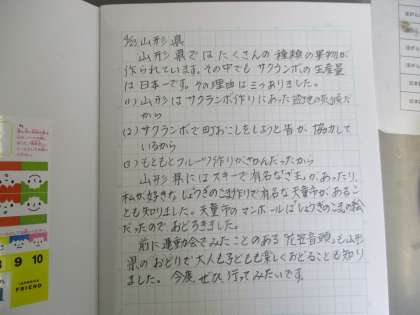 8/23 山形県
山形県ではたくさんの種類の果物が
作られています。その中でもサクランボの生産量
は日本一です。その理由は三つありました。
(1) 山形はサクランボ作りにあった盆地の気候だ
から
(2) サクランボで町おこしをしようと皆が協力して
いるから
(3) もともとフルーツ作りがさかんだったから
山形県にはスキーで有名な「ざ王」があったり、
私が好きなしょうぎのこま作りで有名な天童市があるこ
とも知りました。天童市のマンホールは「しょうぎのこま」の絵
だったのでおどろきました。
前に運動会でみたことのある「花笠音頭」も山形
県のおどりで大人も子どもも楽しくおどることも知り
ました。今度ぜひ行ってみたいです。
8 9 10
FRIEND